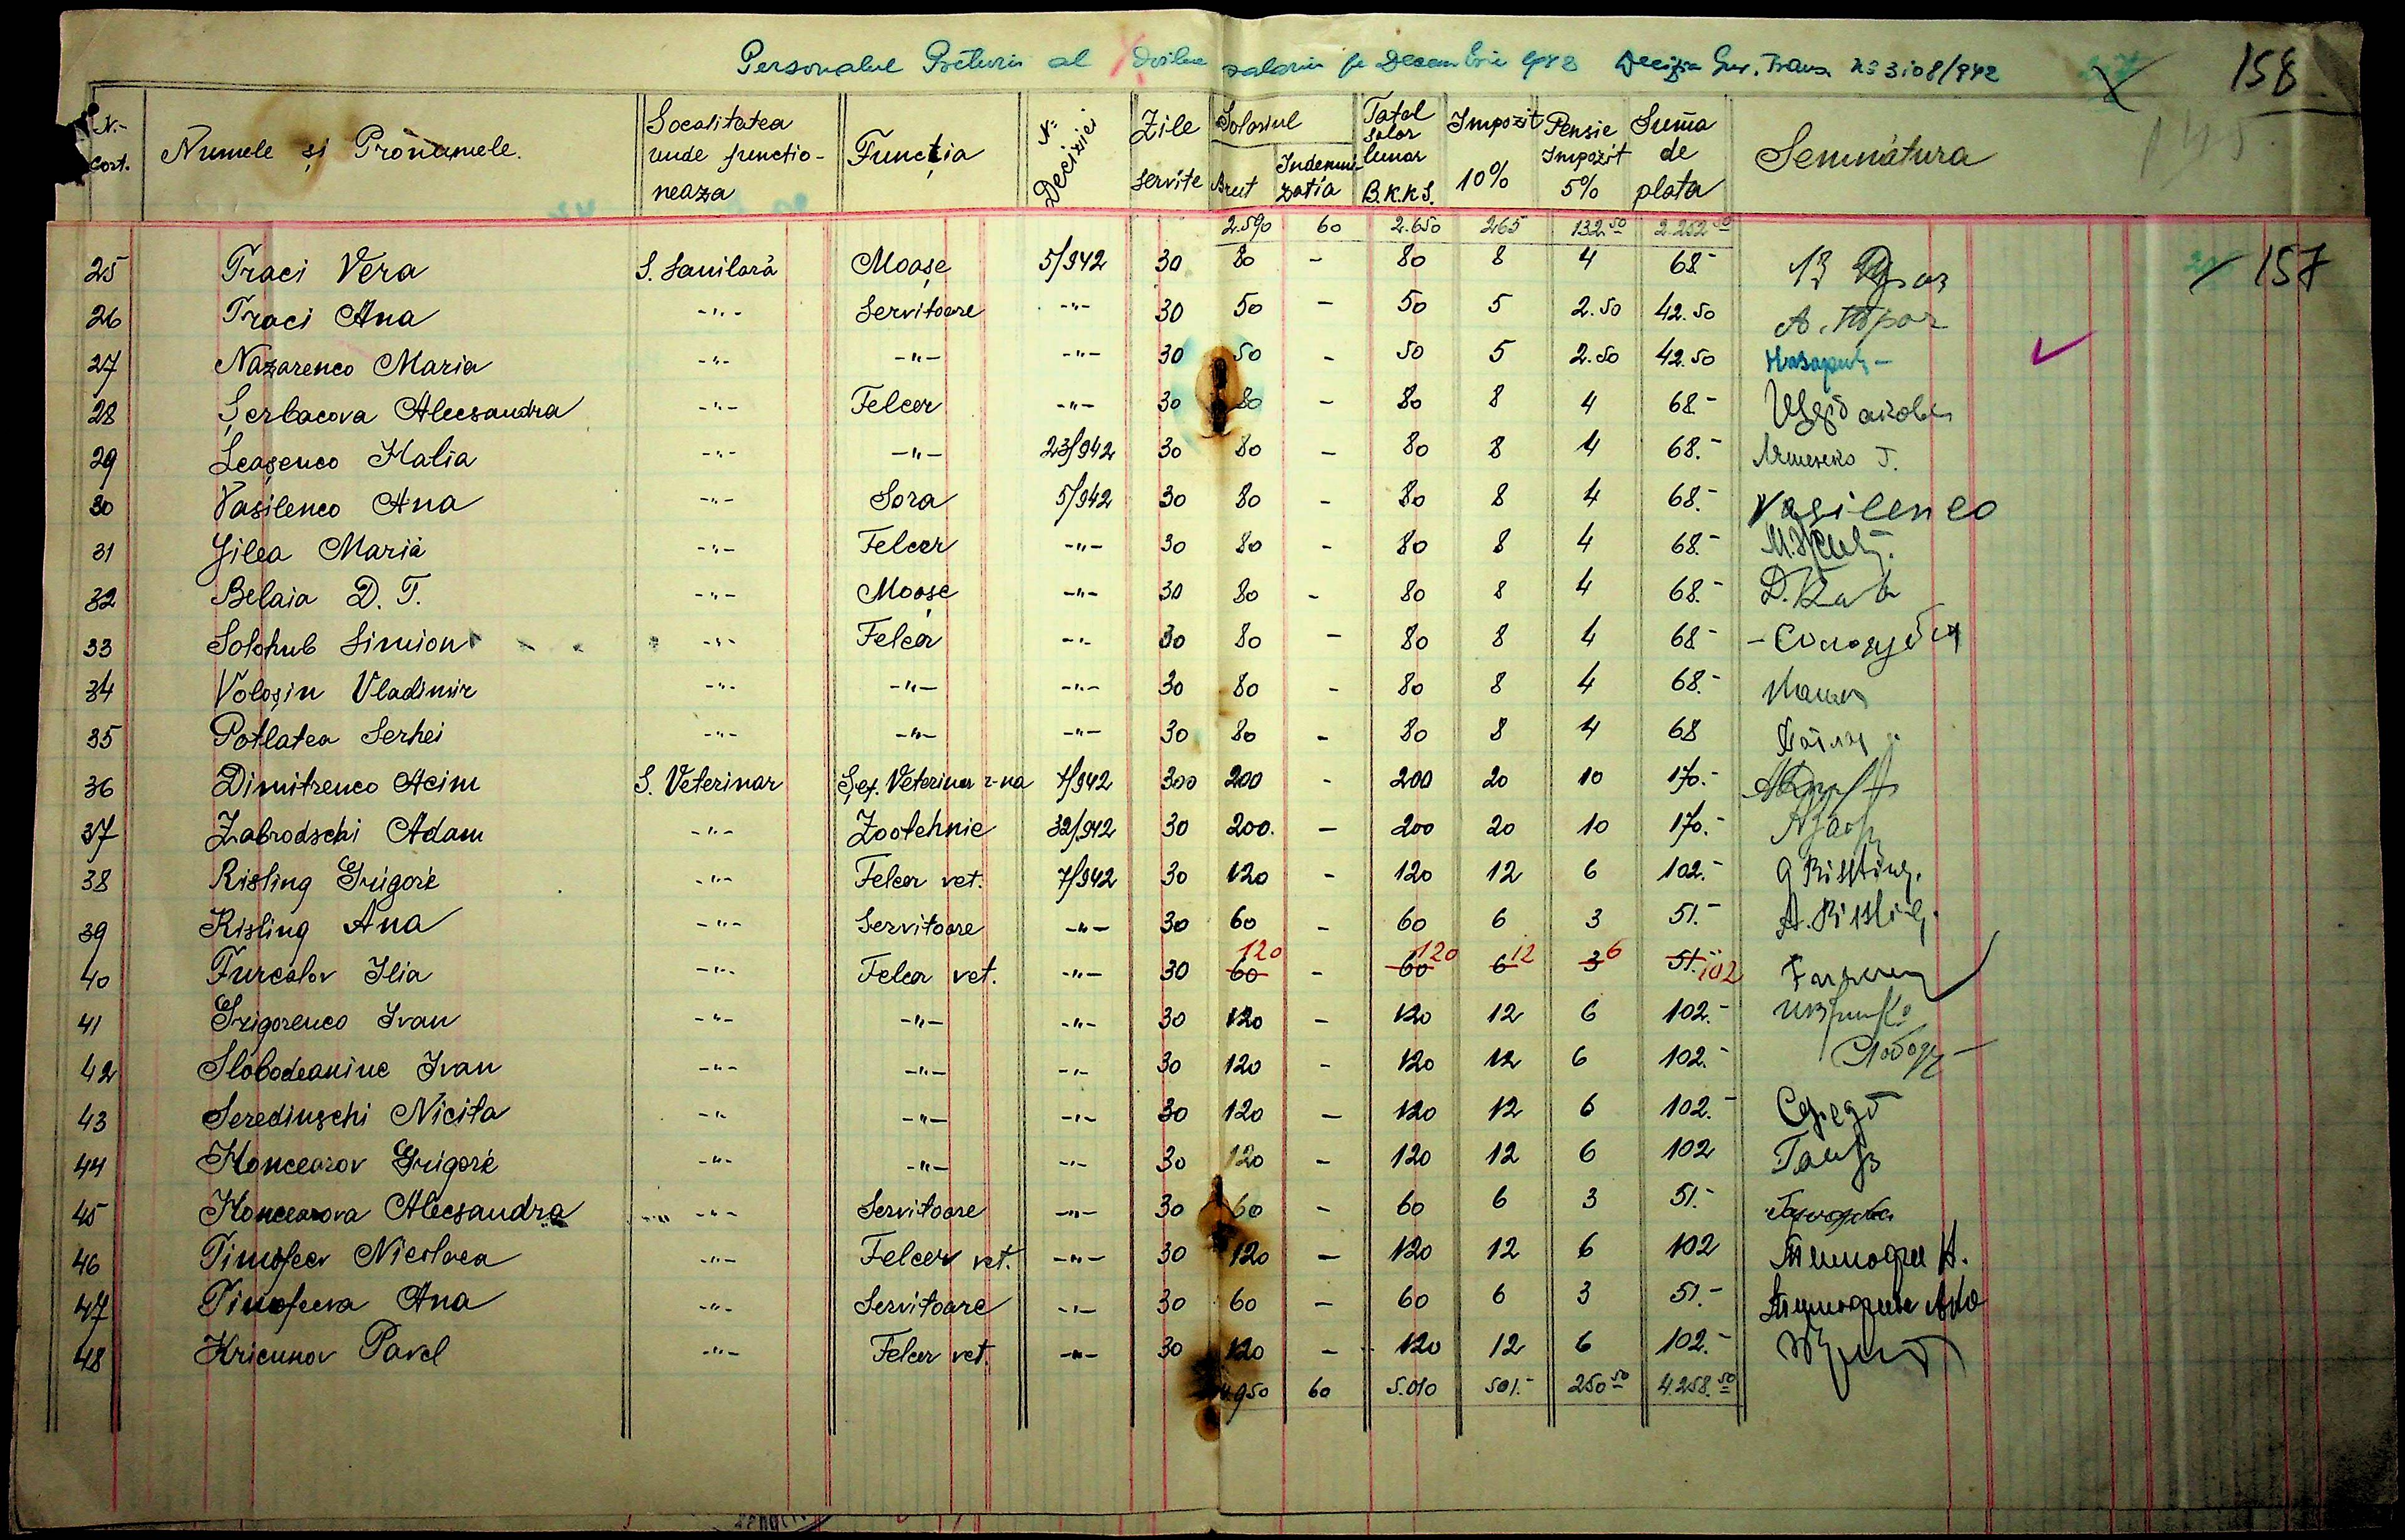 Personalul Preturii al salarii pe Decembrie 942 Decizia Guv. Trans. No 3108/942 158
145
N: Cort. Numele și Pronumele. Localitatea unde functioneaza Funcția N: Deciziei Zile servite Solariul Brut Indemnizatia Tatal solar lunar B.K.K.S. Impozit 10% Pensie Impozit 5% Suma de plata Semnătura
2.590 60 2.650 265 132.50 2.252.50
25 Traci Vera S. Sanitară Moașe 5/942 30 80 - 80 8 4 68.- 157
26 Traci Ana -"- Servitoare -"- 30 50 - 50 5 2.50 42.50
27 Nazarenco Maria -"- -"- -"- 30 50 - 50 5 2.50 42.50
28 Șerbacova Alecsandra -"- Felcer -"- 30 80 - 80 8 4 68.- Щербакова
29 Leașenco Halia -"- -"- 23/942 30 80 - 80 8 4 68.-
30 Vasilenco Ana -"- Sora 5/942 30 80 - 80 8 4 68.- Vasilenco
31 Jilea Maria -"- Felcer -"- 30 80 - 80 8 4 68.-
32 Belaia D. T. -"- Moașe -"- 30 80 - 80 8 4 68.-
33 Solohub Simion -"- Felcer -"- 30 80 - 80 8 4 68.- Сологуб
34 Voloșin Vladimir -"- -"- -"- 30 80 - 80 8 4 68.-
35 Potlatea Serhei -"- -"- -"- 30 80 - 80 8 4 68
36 Dimitrenco Acim S. Veterinar Șef. Veterinar r-na 7/942 300 200 - 200 20 10 170.-
37 Zabrodschi Adam -"- Zootehnic 32/942 30 200. - 200 20 10 170.-
38 Risling Grigore -"- Felcer vet. 7/942 30 120 - 120 12 6 102.- G Rissling.
39 Risling Ana -"- Servitoare -"- 30 60 - 60 6 3 51.- A. Rissling.
40 Furcalov Ilia -"- Felcer vet. -"- 30 60 120 - 60 120 6 12 3 6 51.- 102
41 Grigorenco Ivan -"- -"- -"- 30 120 - 120 12 6 102.-
42 Slobodeaniuc Ivan -"- -"- -"- 30 120 - 120 12 6 102.-
43 Seredinschi Nicita -"- -"- -"- 30 120 - 120 12 6 102.-
44 Honcearov Grigore -"- -"- -"- 30 120 - 120 12 6 102
45 Honcearova Alecsandra -"- Servitoare -"- 30 60 - 60 6 3 51.-
46 Timofeev Nicolaea -"- Felcer vet. -"- 30 120 - 120 12 6 102
47 Timofeeva Ana -"- Servitoare -"- 30 60 - 60 6 3 51.-
48 Kricunov Pavel -"- Felcer vet. -"- 30 120 - 120 12 6 102.-
4.950 60 5.010 501.- 250.50 4.258.50